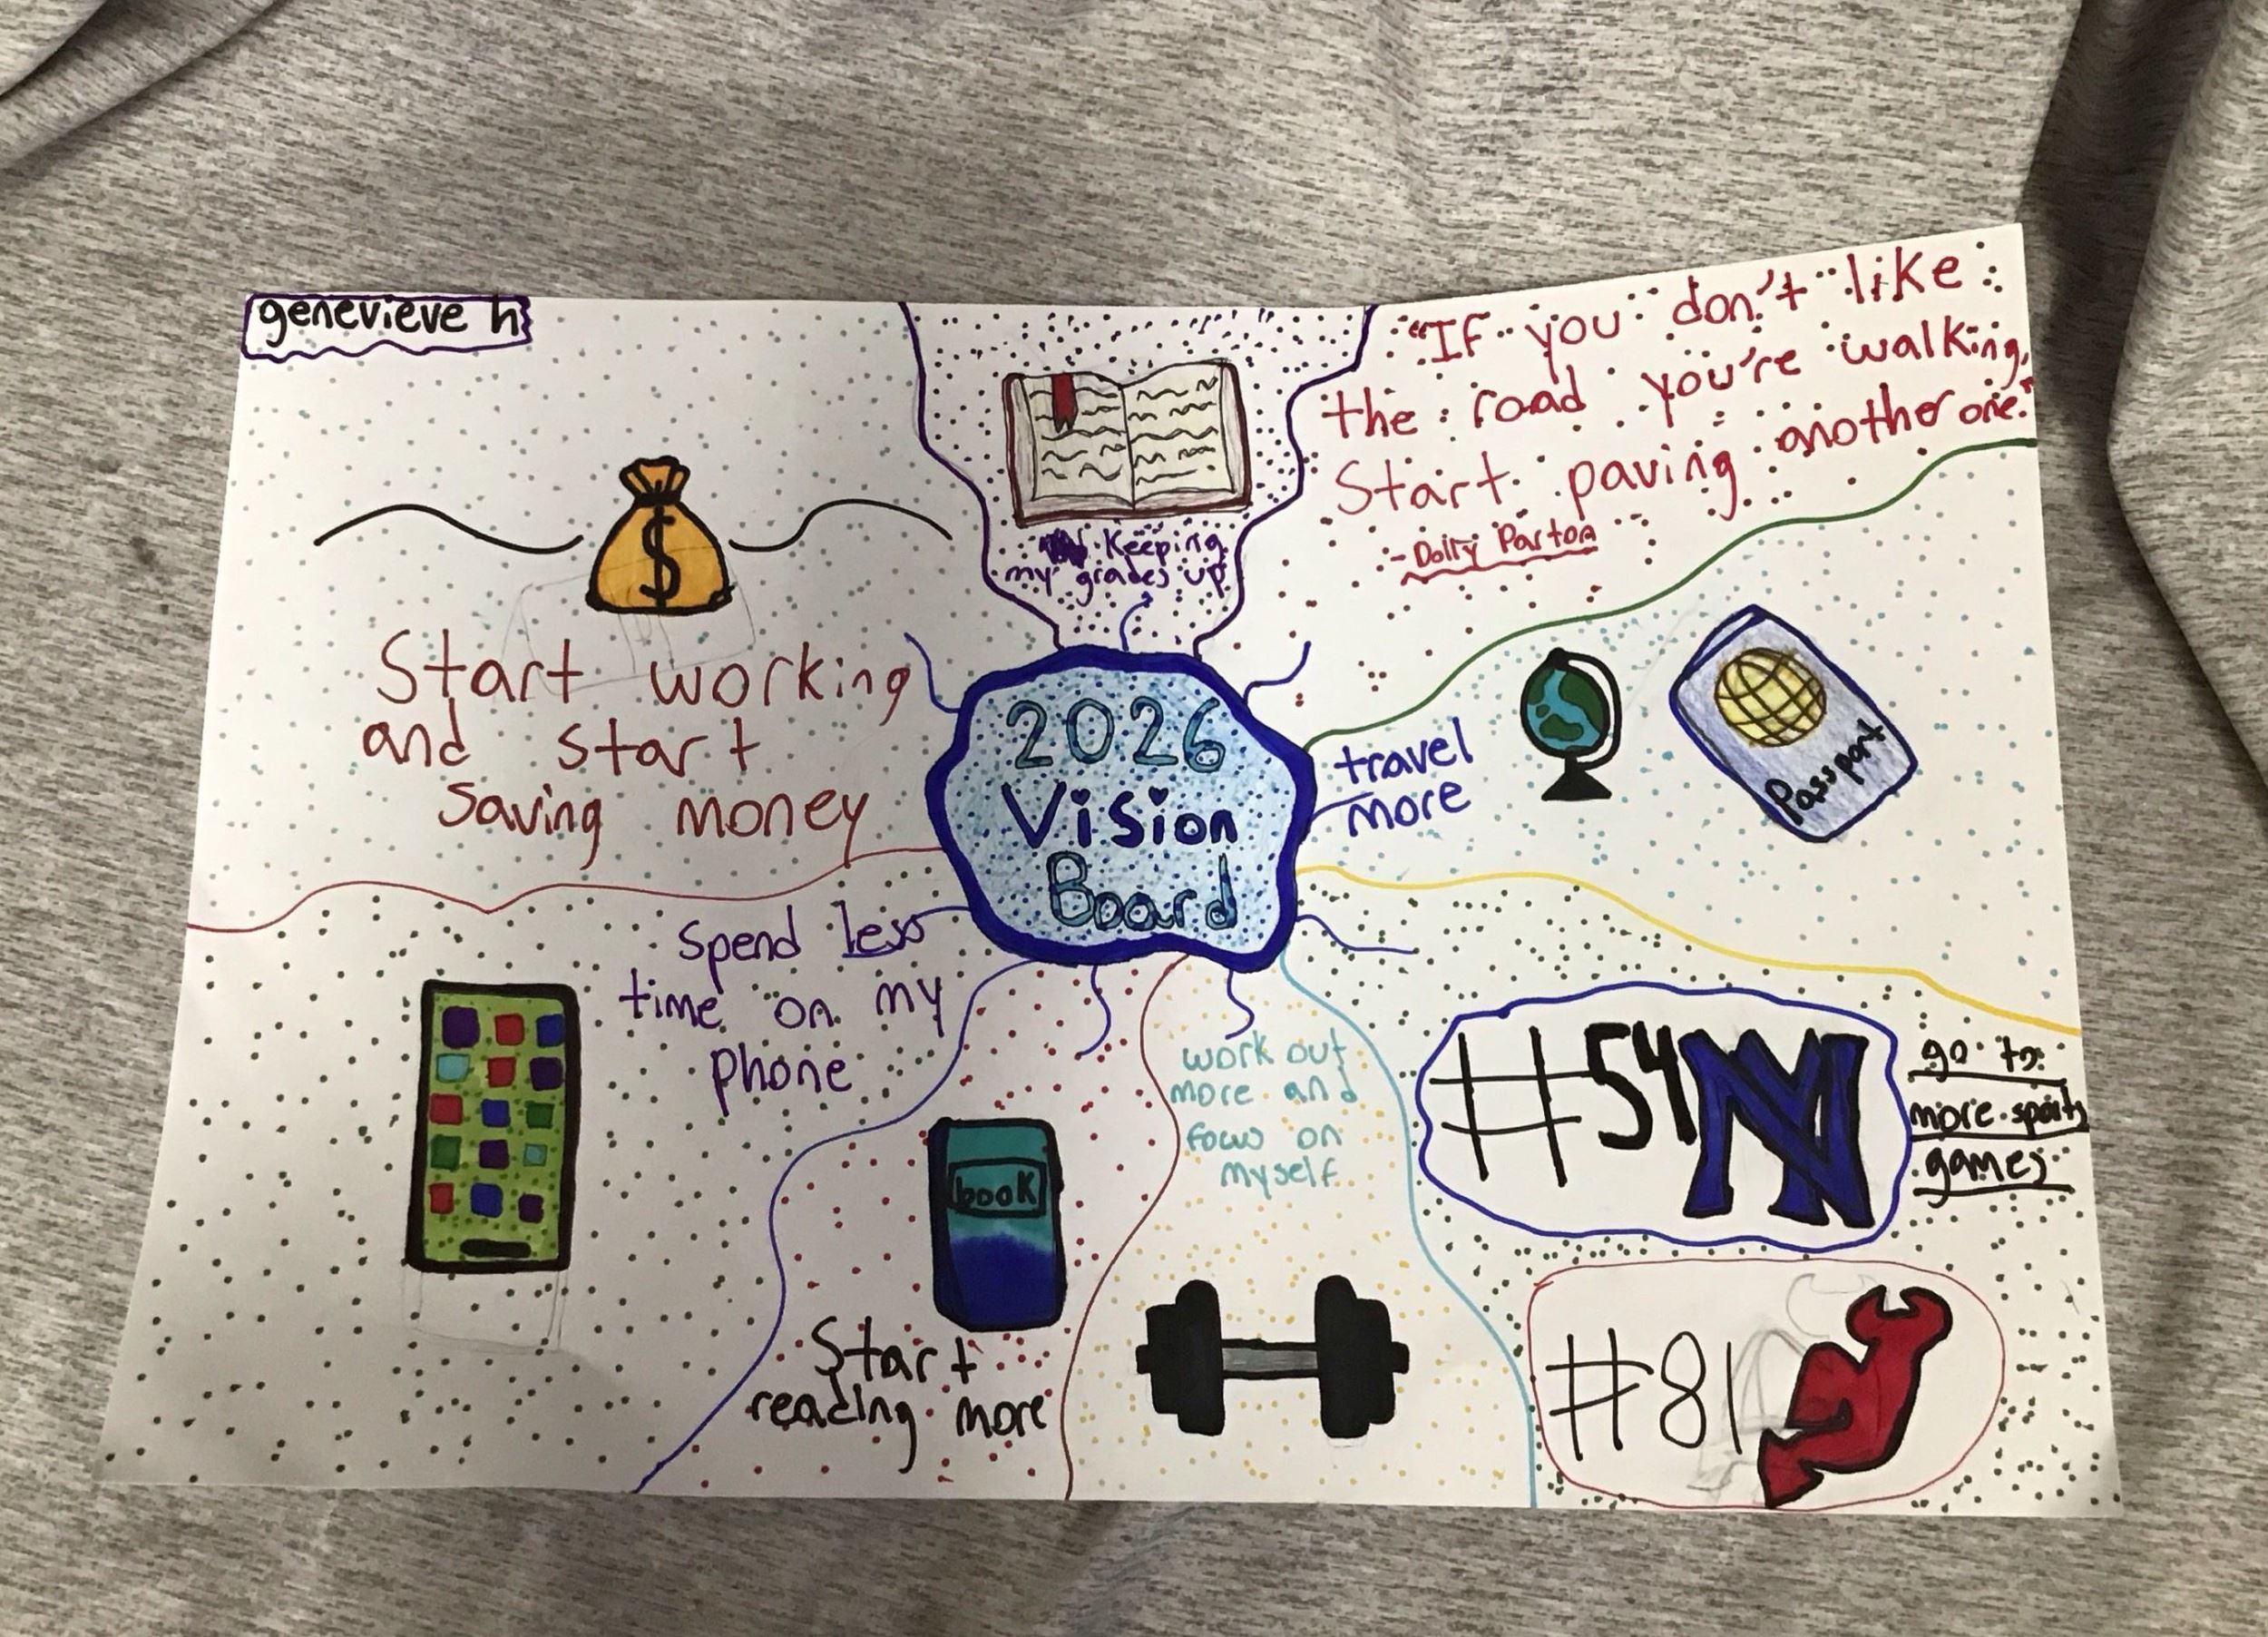 genevieve h
Keeping
my grades up
"If you don't like
the road you're walking,
Start paving another one."
- Dolly Parton
Start working
and start
saving money
2026
Vision
Board
travel
more
Passport
spend less
time on my
phone
book
Start
reading more
work out
more and
focus on
myself
#54 NY
go to
more sports
games
#81